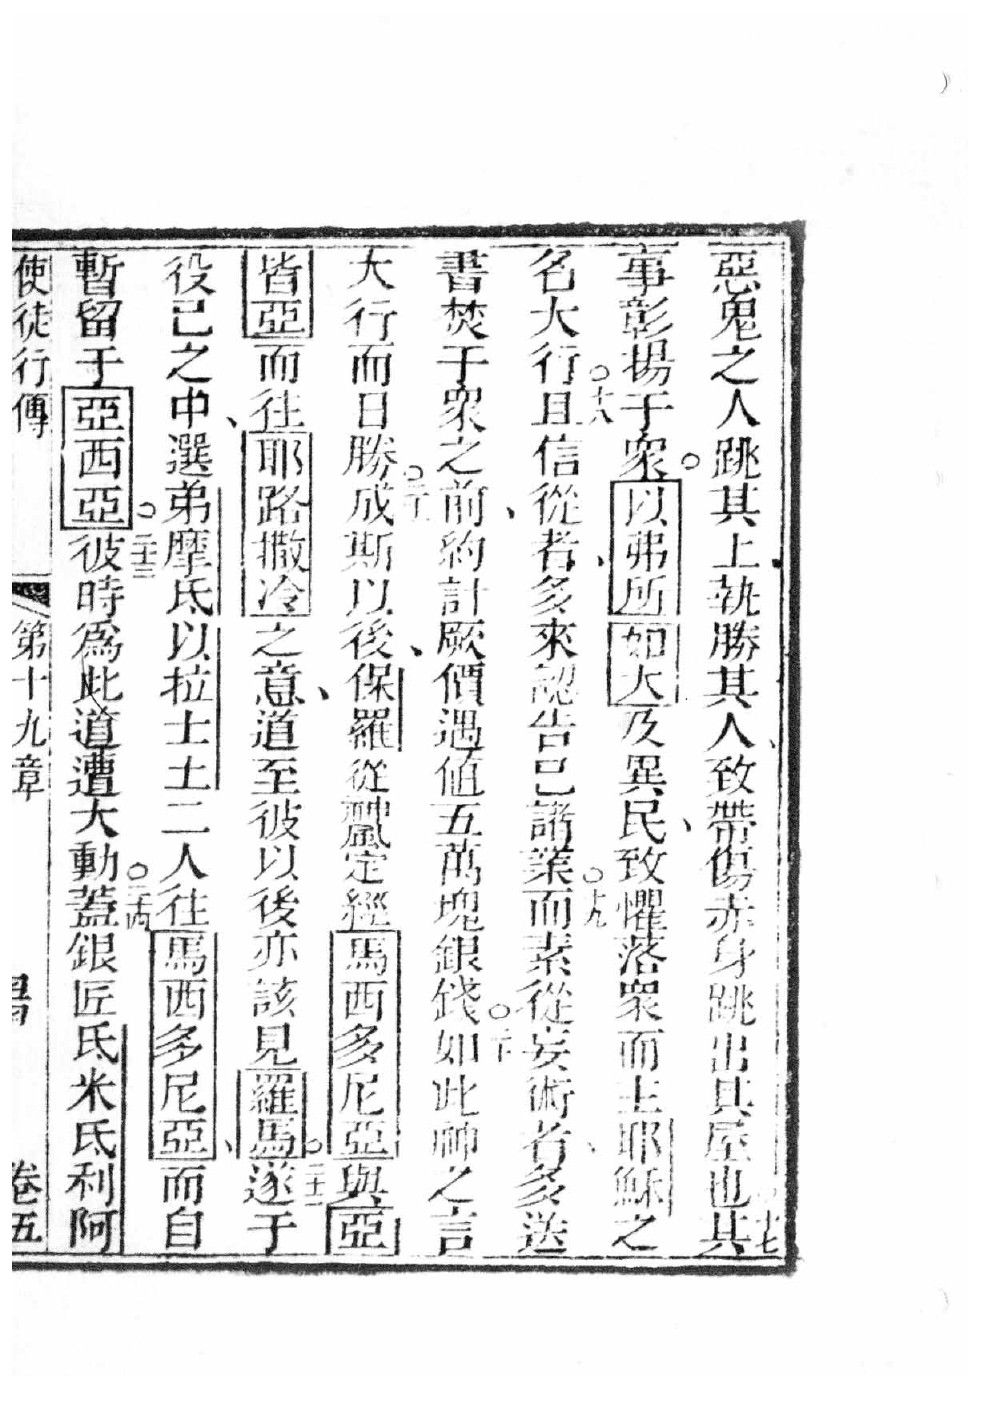 惡鬼之人跳其上執勝其人致帶傷赤身跳出其屋也○十七其
事彰揚于衆○以弗所如大及異民致懼落衆而主耶穌之
名大行○十八且信從者多來認告己諸業○十九而素從妄術者多送
書焚于衆之前約計厥價遇值五萬塊銀錢○二十如此神之言
大行而日勝○二一成斯以後保羅從神風定經馬西多尼亞與亞
皆亞而往耶路撒冷之意道至彼以後亦該見羅馬○二十二遂于
役己之中選弟摩氐以拉士土二人往馬西多尼亞而自
暫留于亞西亞○二十三彼時爲此道遭大動○二十四蓋銀匠氐米氐利阿
使徒行傳 第十九章 卷五